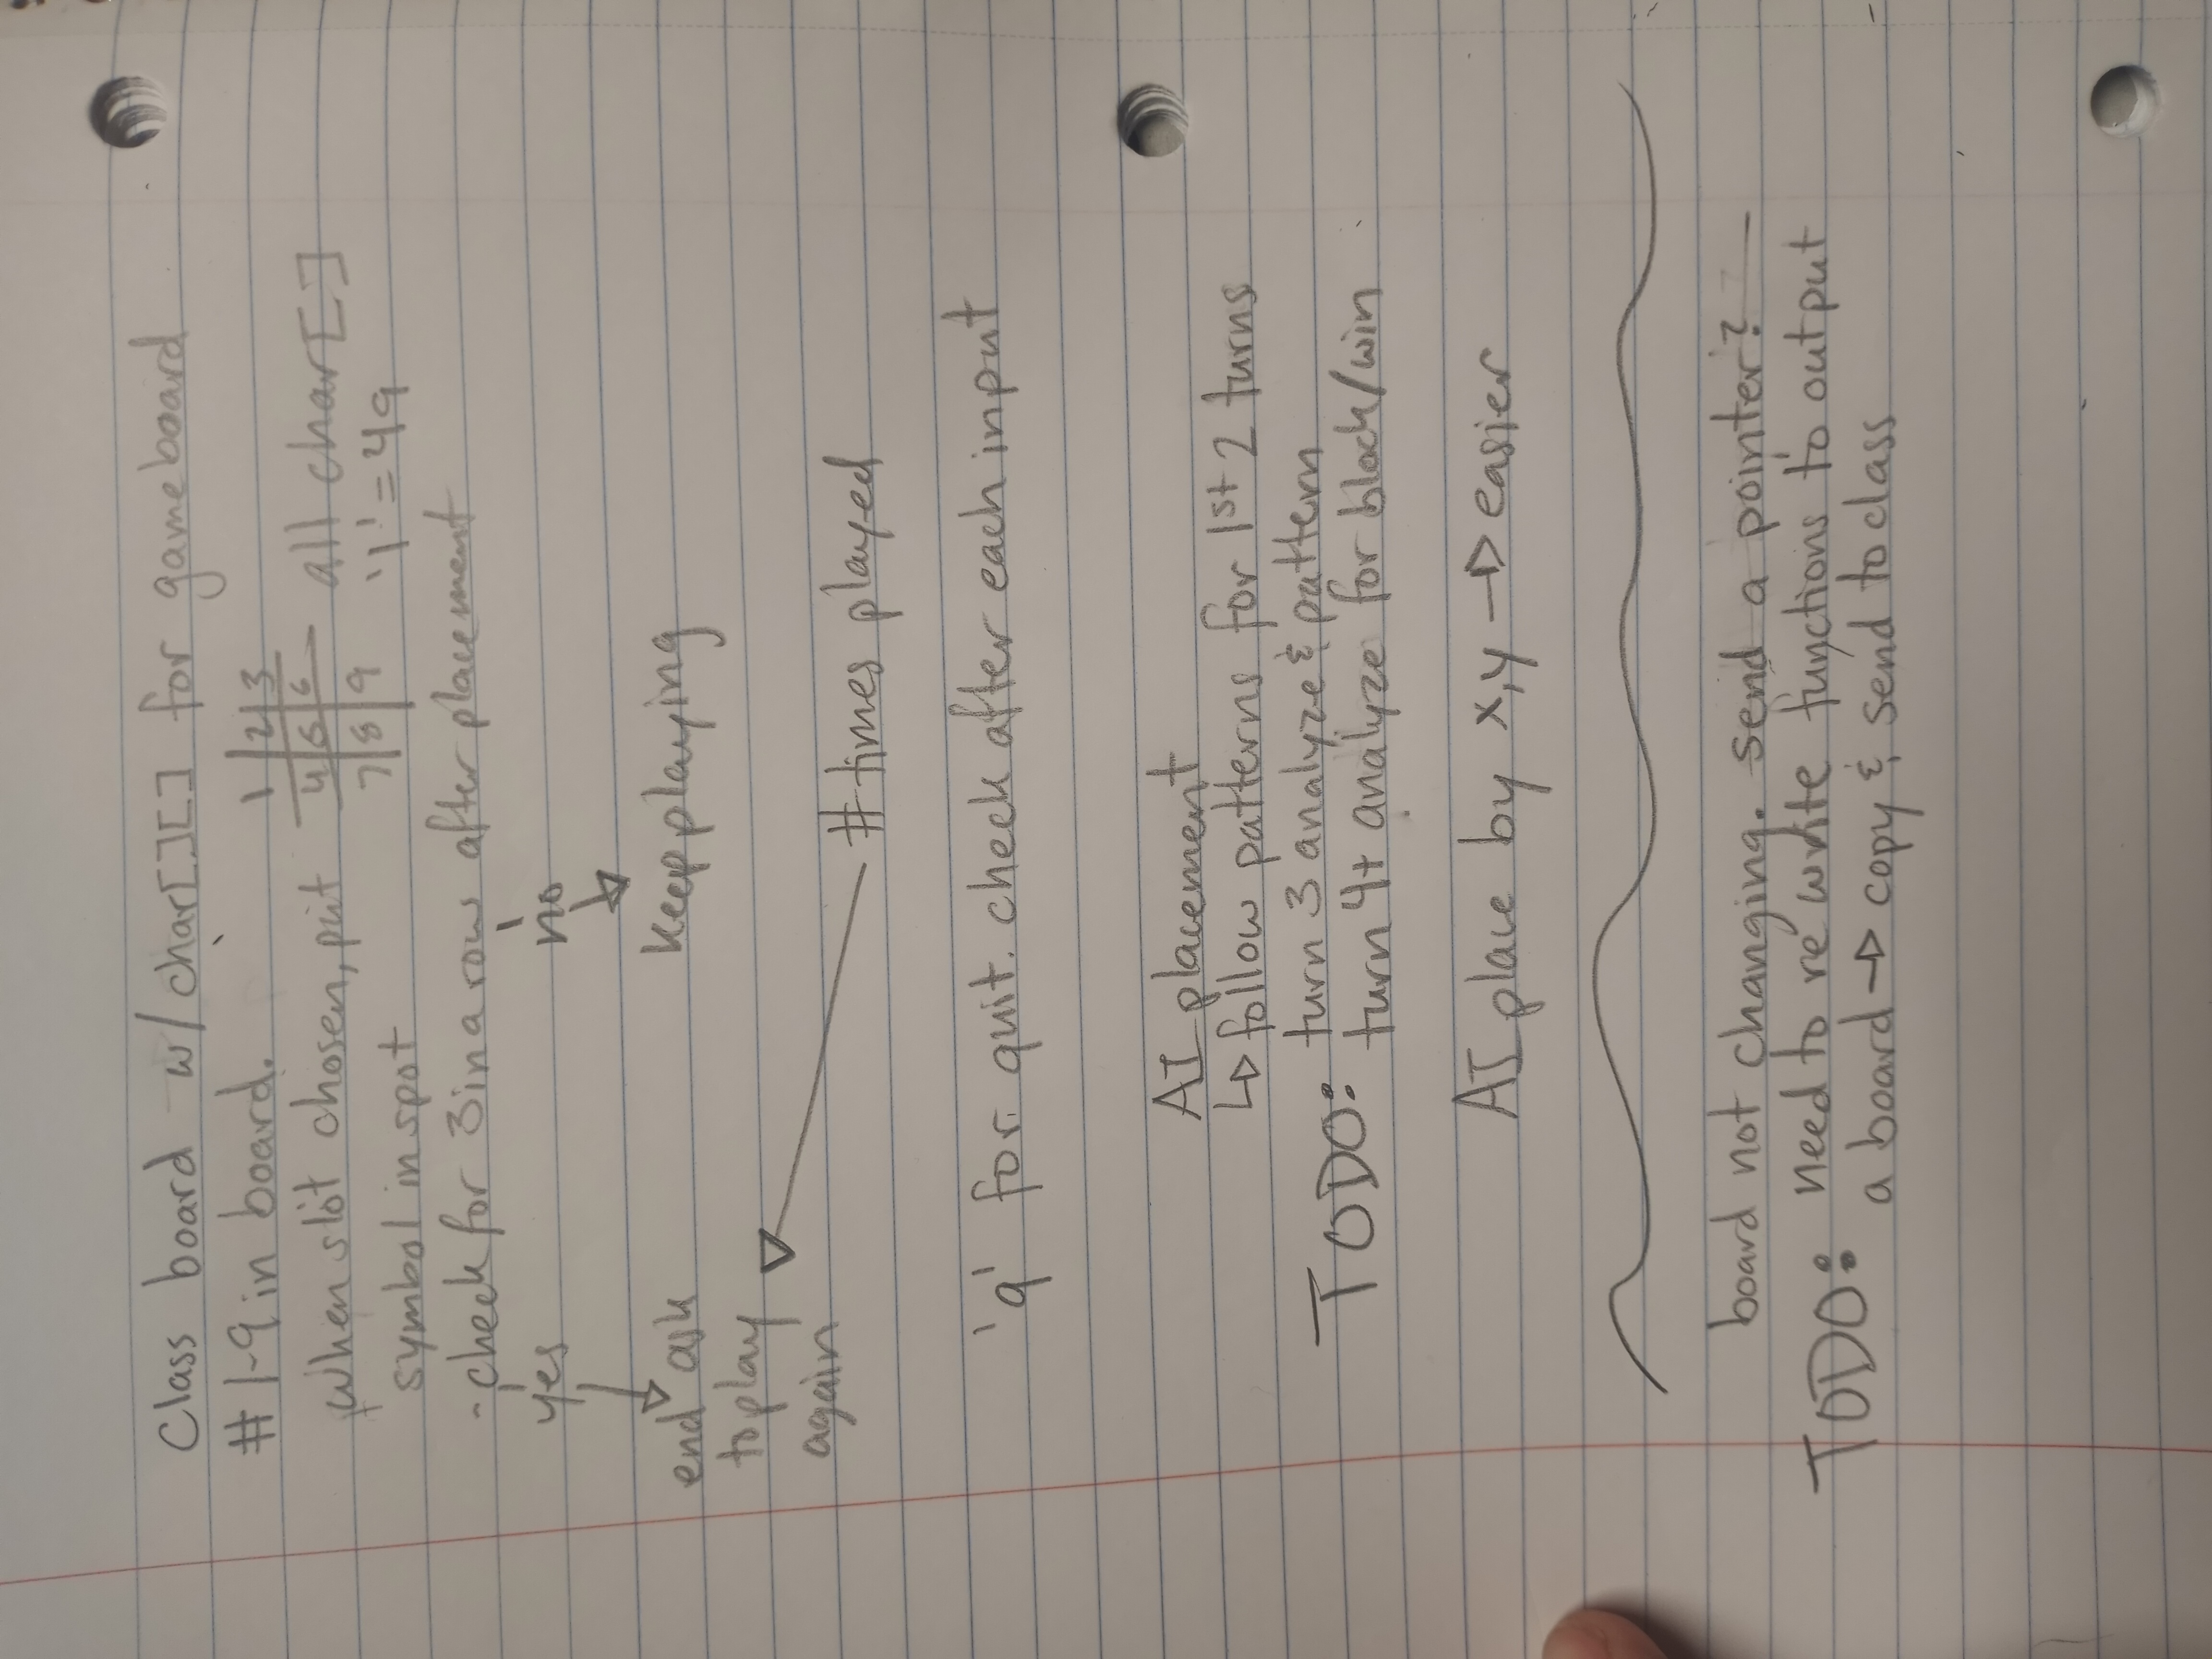 Class board w/ char[][] for gameboard
# 1-9 in board.
1 | 2 | 3
4 | 5 | 6
7 | 8 | 9
all char[]
'1' = 49
when slot chosen, put
symbol in spot
- check for 3 in a row after placement
yes
no
end ask
to play
again
keep playing
# times played
'q' for quit. check after each input
AI placement
follow patterns for 1st 2 turns
TODO:
turn 3 analyze & pattern
turn 4+ analyze for block/win
AI place by x,y → easier
board not changing. send a pointer?
TODO:
need to re write functions to output
a board → copy & send to class